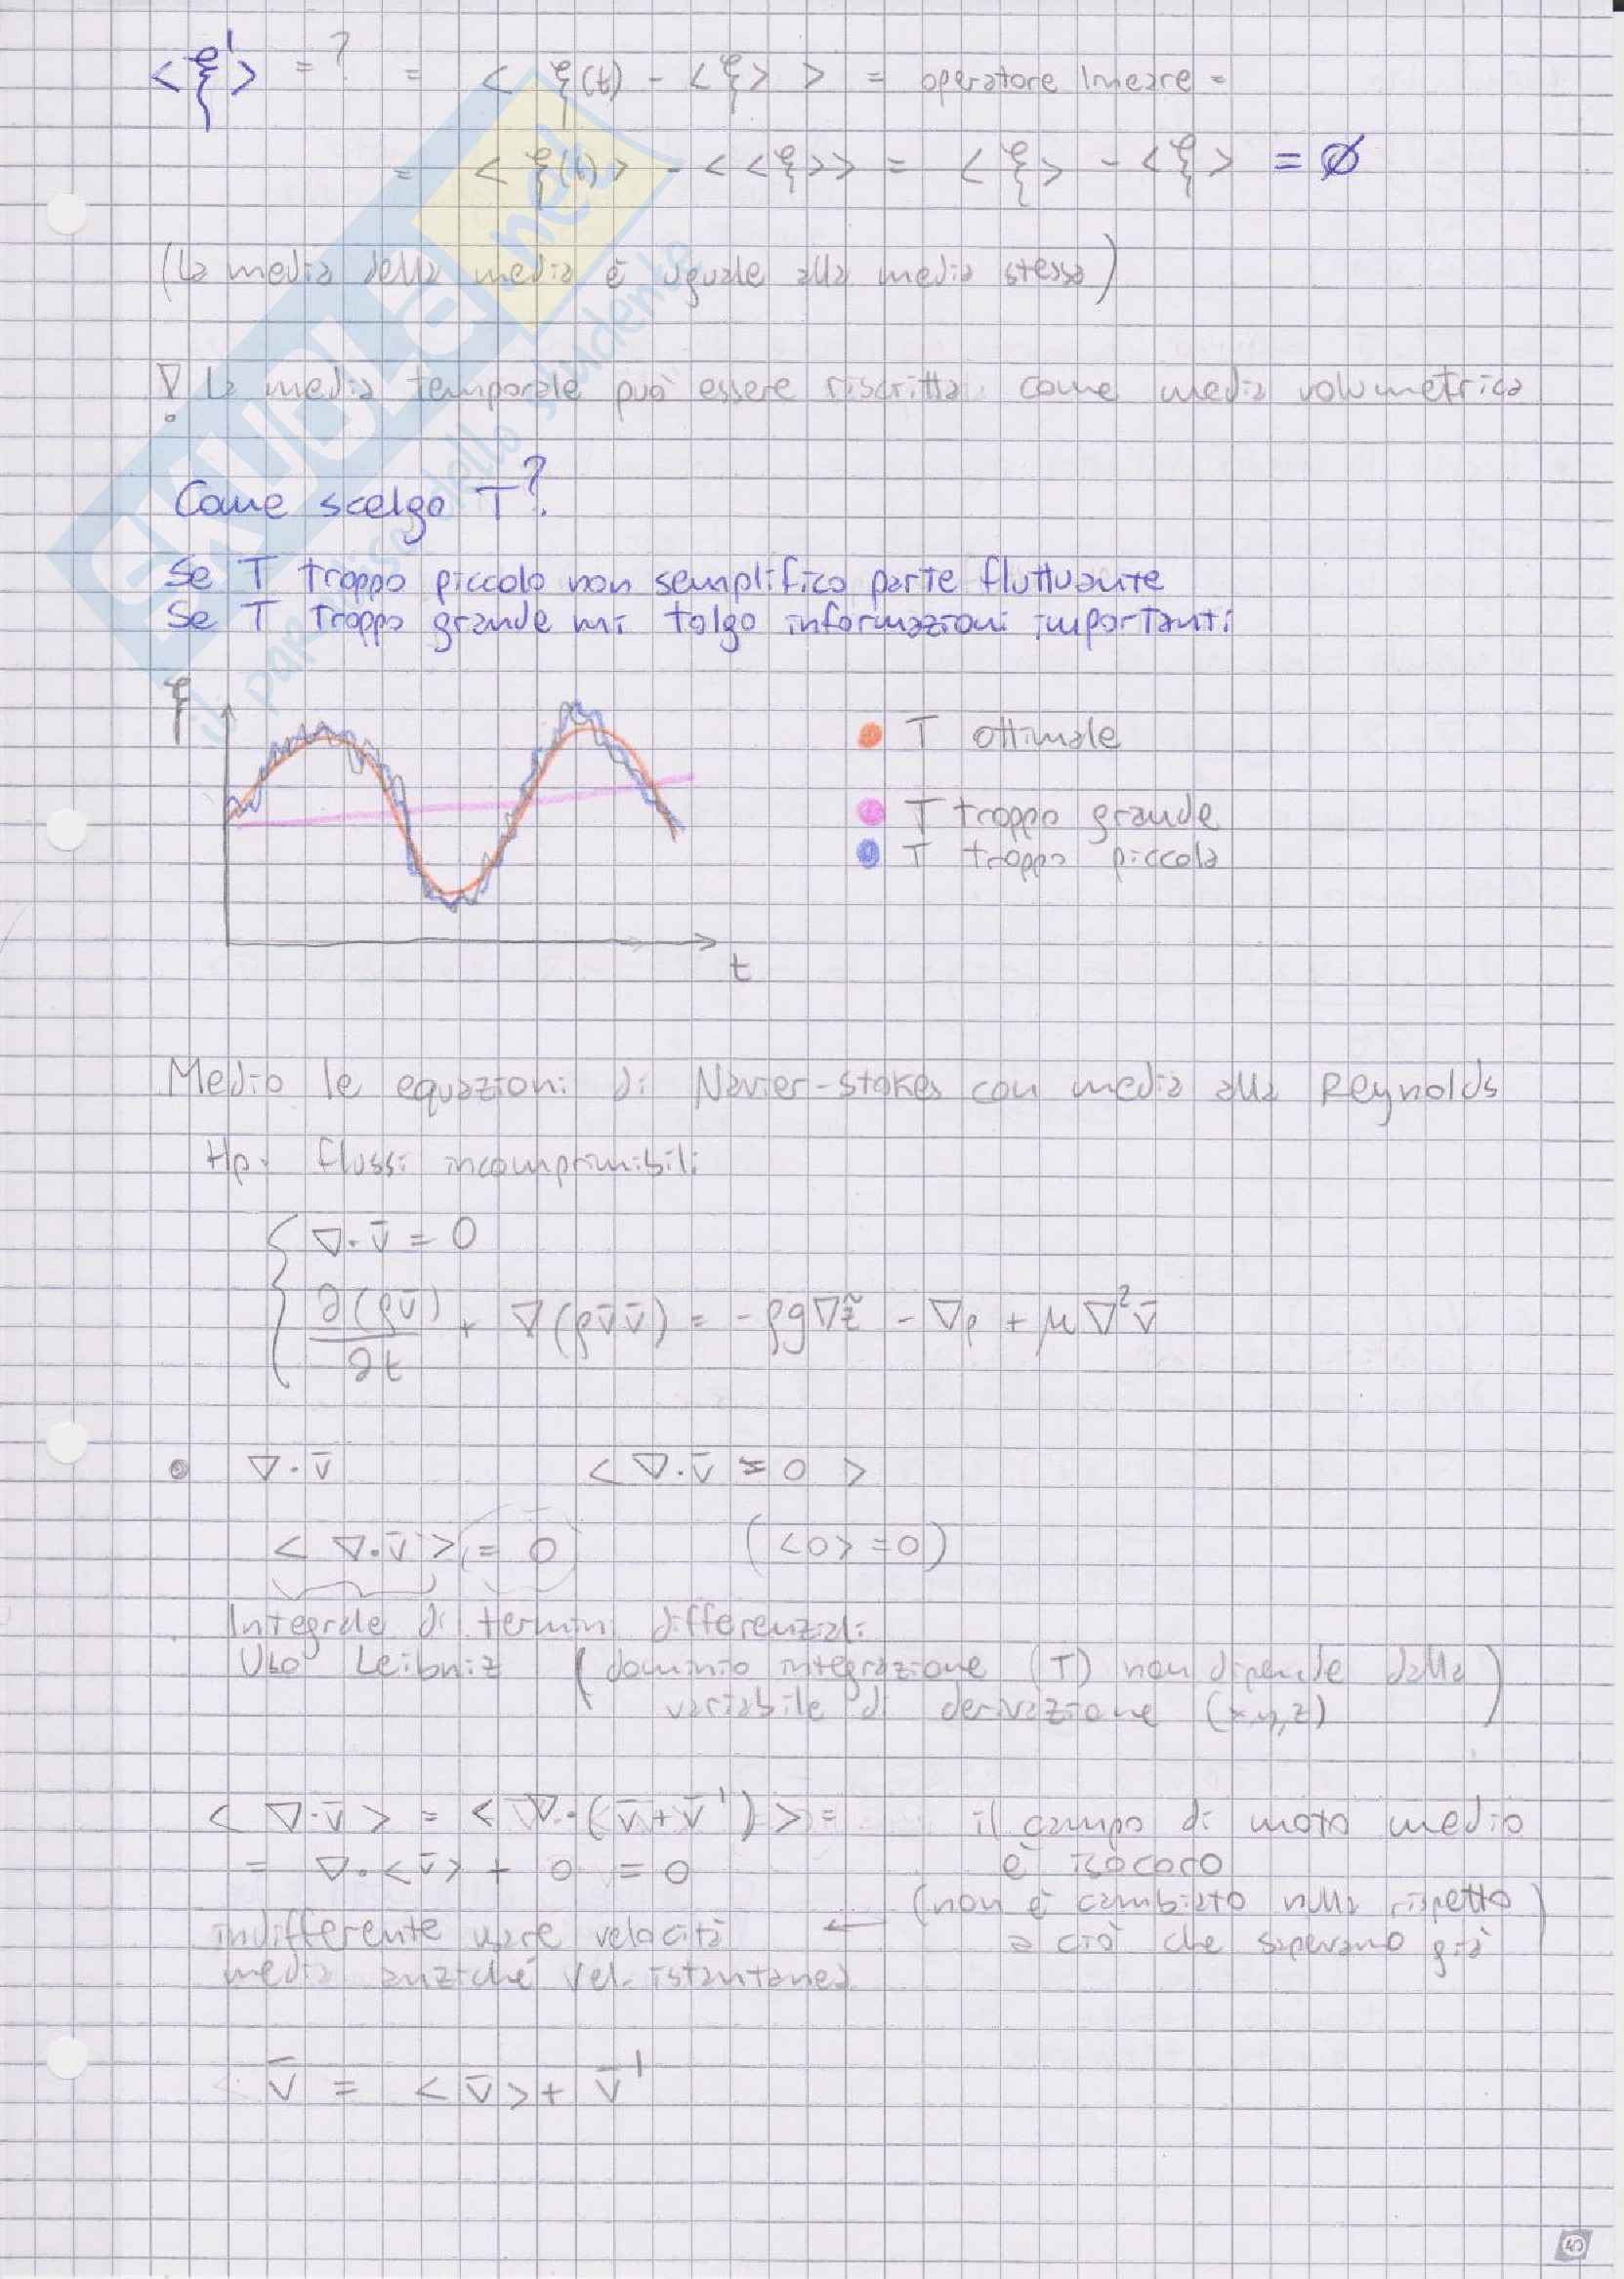 <ξ'> = ? = < ξ(t) - <ξ> > = operatore lineare =
= < ξ(t) > - < <ξ> > = <ξ> - <ξ> = ∅
(La media della media è uguale alla media stessa)
! La media temporale può essere riscritta come media volumetrica
Come scelgo T?
Se T troppo piccolo non semplifico parte fluttuante
Se T troppo grande mi tolgo informazioni importanti
ξ
T ottimale
T troppo grande
T troppo piccola
t
Medio le equazioni di Navier-Stokes con media alla Reynolds
Hp. flussi incomprimibili
∇·v̄ = 0
∂(ρv̄)/∂t + ∇(ρv̄v̄) = -ρg∇z̃ - ∇p + μ∇²v̄
• ∇·v̄ < ∇·v̄ = 0 >
< ∇·v̄ > = 0 (<0> = 0)
Integrale di termini differenziali
Uso Leibniz (dominio integrazione (T) non dipende dalla
variabile di derivazione (x,y,z))
< ∇·v̄ > = < ∇·(v̄ + v̄') > = il campo di moto medio
= ∇·<v̄> + 0 = 0 è isocoro
(non è cambiato nulla rispetto
indifferente usare velocità ← a ciò che sapevamo già)
media anziché vel. istantanea
v̄ = <v̄> + v̄'
SKUOLA.net
il paradiso dello studente